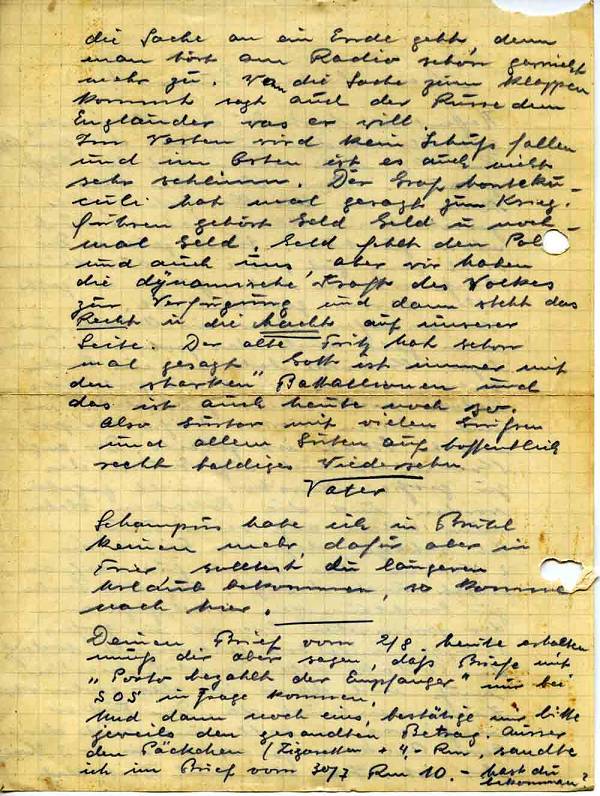 die Sache an ein Ende geht, denn
man hört am Radio schon garnicht
mehr zu. Wann die Sache zum klappen
kommt sagt auch der Russe dem
Engländer was er will.
Im Westen wird kein Schuß fallen
und im Osten ist es auch nicht
sehr schlimm. Der Graf
hat mal gesagt zum Krieg-
führen gehört Geld Geld u noch-
mal Geld. Geld fehlt den Pol
und auch uns, aber wir haben
die dynamische Kraft des Volkes
zur Verfügung und dann steht das
Recht u die Macht auf unserer
Seite. Der alte Fritz hat schon
mal gesagt "Gott ist immer mit
den starken" Battallionen und
das ist auch heute noch so.
Also Gustav mit vielen Grüßen
und allem Guten auf hoffentlich
recht baldiges Wiedersehn
Vater
Schampus habe ich in Brühl
keinen mehr, dafür aber in
Trier solltest du längeren
Urlaub bekommen, so komme
nach hier.
Deinen Brief vom 2/8. heute erhalten
muß dir aber sagen, daß Briefe mit
"Porto bezahlt der Empfänger" nur bei
SOS in Frage kommen.
Und dann noch eins, bestätige mir bitte
jeweils den gesandten Betrag. Ausser
den Päckchen (Zigaretten + 4,- Rm, sandte
ich im Brief vom 30/7 Rm 10.- hast du
bekommen?